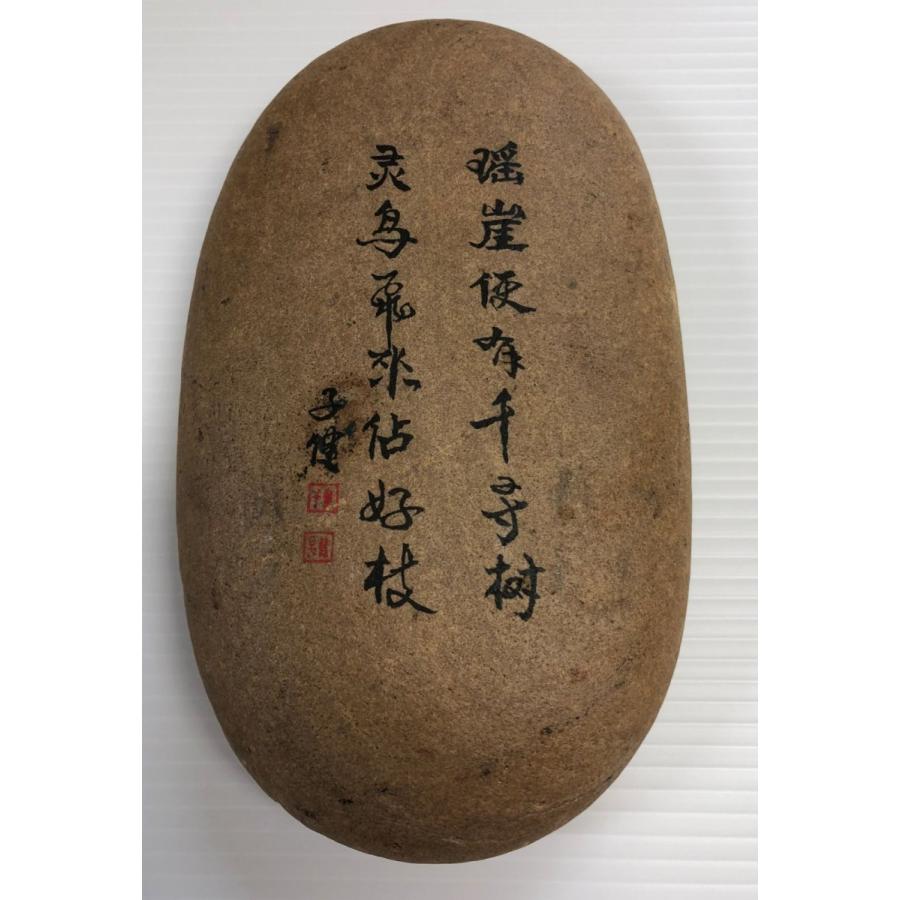 瑶崖便有千寻树
灵鸟飞来佔好枝
子健